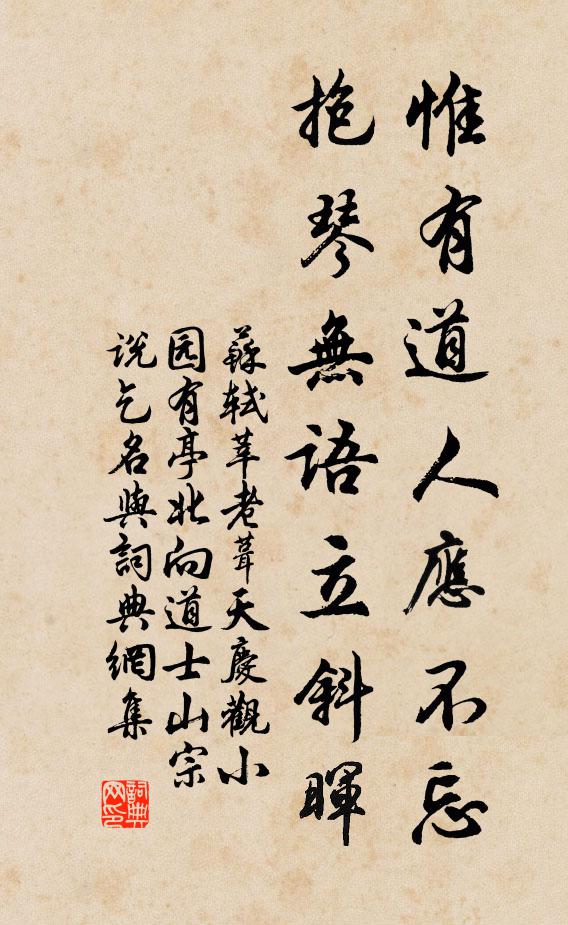 惟有道人應不忘
抱琴無語立斜暉
蘇軾莘老葺天慶觀小
园有亭北向道士山宗
说乞名與詞典網集
詞典
网印